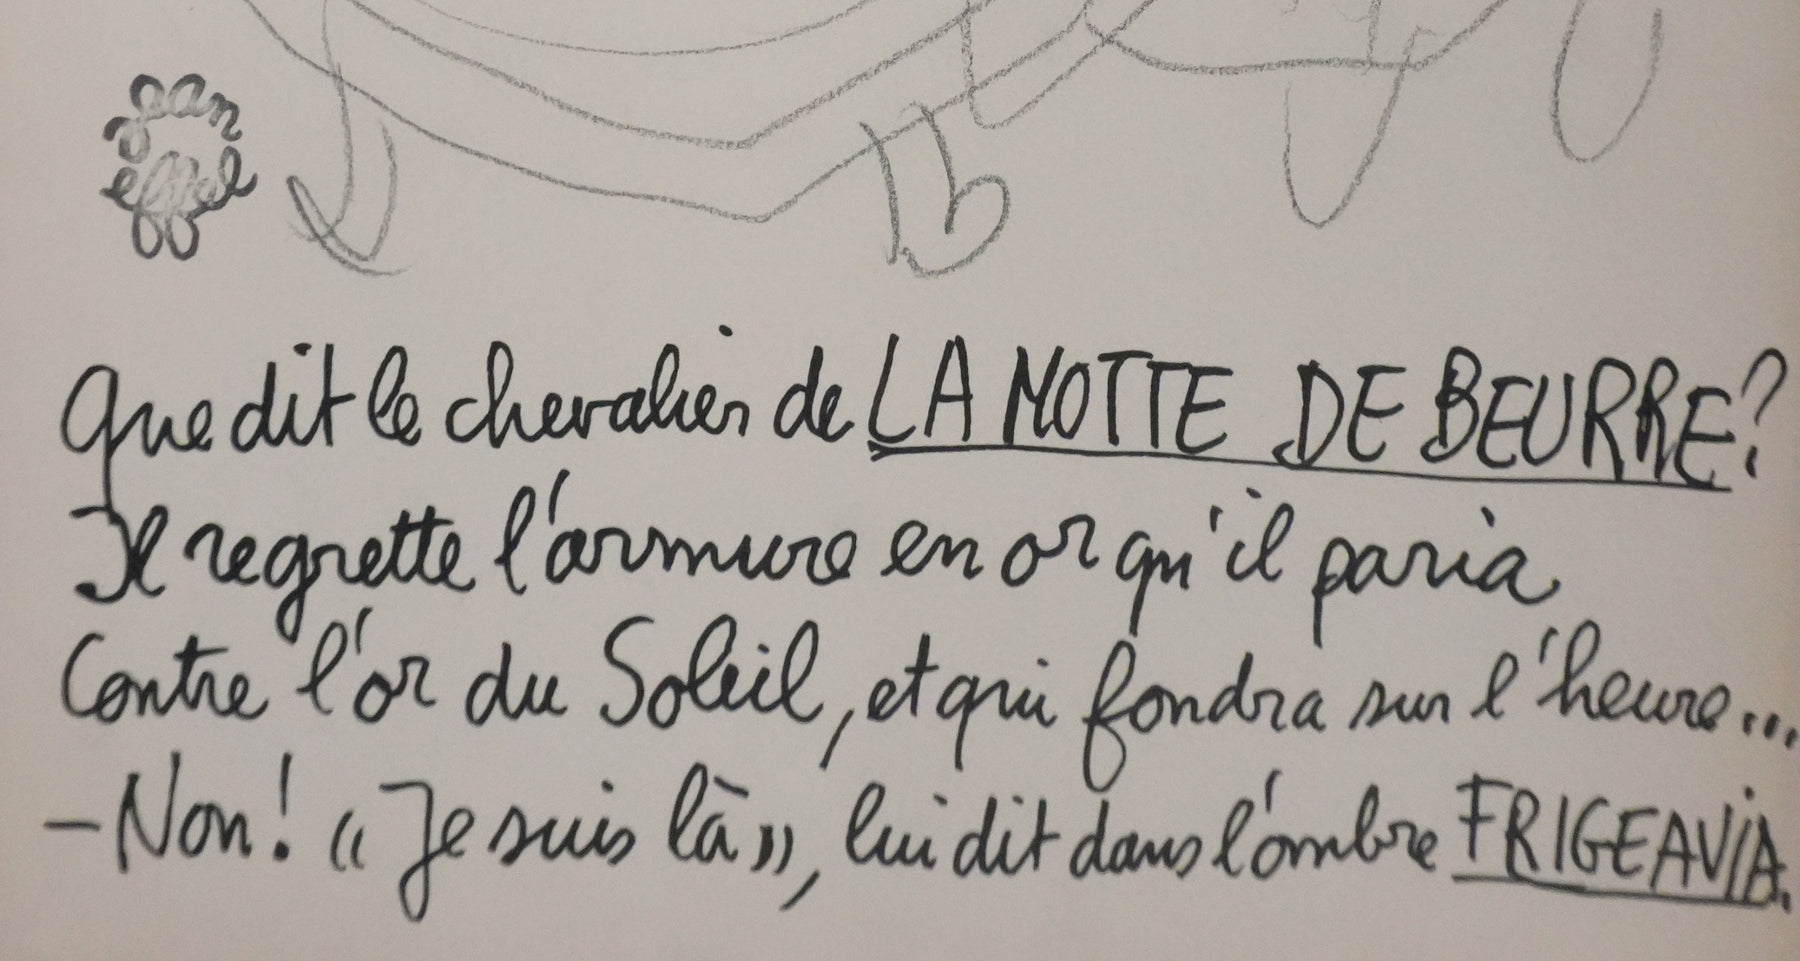 jean
effel
Que dit le chevalier de LA MOTTE DE BEURRE?
Il regrette l'armure en or qu'il paria
Contre l'or du Soleil, et qui fondra sur l'heure...
- Non! « Je suis là », lui dit dans l'ombre FRIGEAVIA.